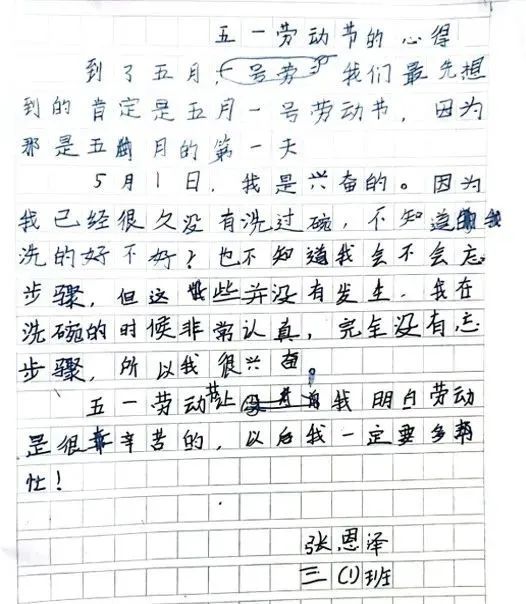 五一劳动节的心得
到了五月，我们最先想
到的肯定是五月一号劳动节，因为
那是五月的第一天
5月1日，我是兴奋的。因为
我已经很久没有洗过碗，不知道我
洗的好不好？也不知道我会不会忘
步骤，但这些并没有发生．我在
洗碗的时候非常认真，完全没有忘
步骤，所以我很兴奋。
五一劳动节让我明白劳动
是很辛苦的，以后我一定要多帮
忙！
张恩泽
三（1）班